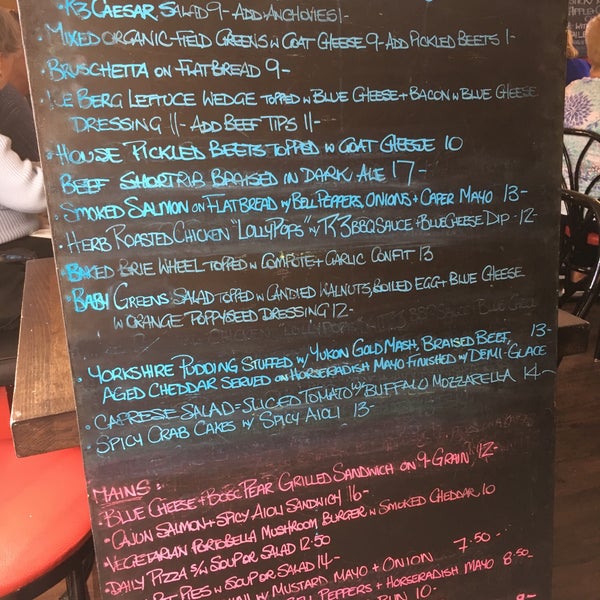 • R3 CAESAR SALAD 9- ADD ANCHOVIES 1-
• MIXED ORGANIC FIELD GREENS W GOAT CHEESE 9- ADD PICKLED BEETS 1-
• BRUSCHETTA ON FLATBREAD 9-
BERG LETTUCE WEDGE TOPPED W BLUE CHEESE + BACON W BLUE CHEESE
DRESSING 11- ADD BEEF TIPS 11-
• HOUSE PICKLED BEETS TOPPED W GOAT CHEESE 10
BEEF SHORTRIB BRAISED IN DARK ALE 17-
• SMOKED SALMON ON FLATBREAD W/ BELL PEPPERS, ONIONS + CAPER MAYO 13-
• HERB ROASTED CHICKEN "LOLLYPOPS" W/ R3 BBQ SAUCE + BLUE CHEESE DIP 12-
• BAKED BRIE WHEEL TOPPED W COMPOTE + GARLIC CONFIT 13
• BABY GREENS SALAD TOPPED W CANDIED WALNUTS, BOILED EGG + BLUE CHEESE
W ORANGE POPPYSEED DRESSING 12-
• YORKSHIRE PUDDING STUFFED W/ YUKON GOLD MASH, BRAISED BEEF, 13-
AGED CHEDDAR SERVED ON HORSERADISH MAYO FINISHED W/ DEMI-GLACE
• CAPRESE SALAD - SLICED TOMATO W/ BUFFALO MOZZARELLA 14-
• SPICY CRAB CAKES W/ SPICY AIOLI 13-
MAINS:
• BLUE CHEESE + BOSC PEAR GRILLED SANDWICH ON 9-GRAIN 12-
• CAJUN SALMON + SPICY AIOLI SANDWICH 16-
• VEGETARIAN PORTOBELLA MUSHROOM BURGER W SMOKED CHEDDAR 10
• DAILY PIZZA S/W SOUP OR SALAD 12.50
PIES W SOUP OR SALAD 14-
W/ MUSTARD MAYO + ONION 7.50-
BELL PEPPERS + HORSERADISH MAYO 8.50-
BUN 10-